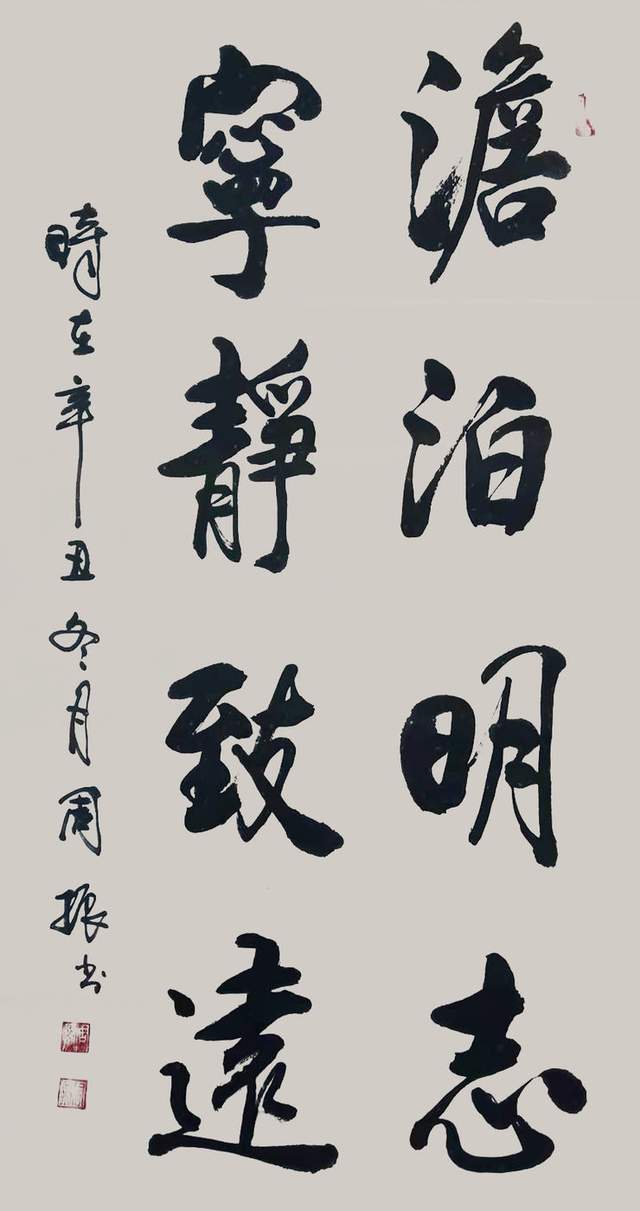 澹泊明志
寧靜致遠
時在辛丑冬月周振书